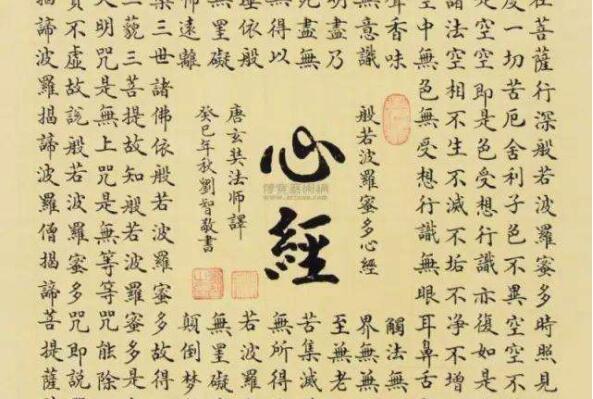 在菩薩行深般若波羅蜜多時照見
度一切苦厄舍利子色不異空空不
是空空即是色受想行識亦復如是
諸法空相不生不滅不垢不淨不增
空中無色無受想行識無眼耳鼻舌
聲香味
觸法無
無意識
界無無
明盡乃
至無老
死盡無
苦集滅
無得以
無所得
埵依般
若波羅
無罣礙
無罣礙
怖遠離
顛倒梦
般若波羅蜜多心經
心經
唐玄奘法师譯
癸巳年秋劉智敬書
槃三世諸佛依般若波羅蜜多故得
三藐三菩提故知般若波羅蜜多是
大明咒是無上咒是無等等咒能除
實不虛故說般若波羅蜜多咒即說
揭諦波羅揭諦波羅僧揭諦菩提薩